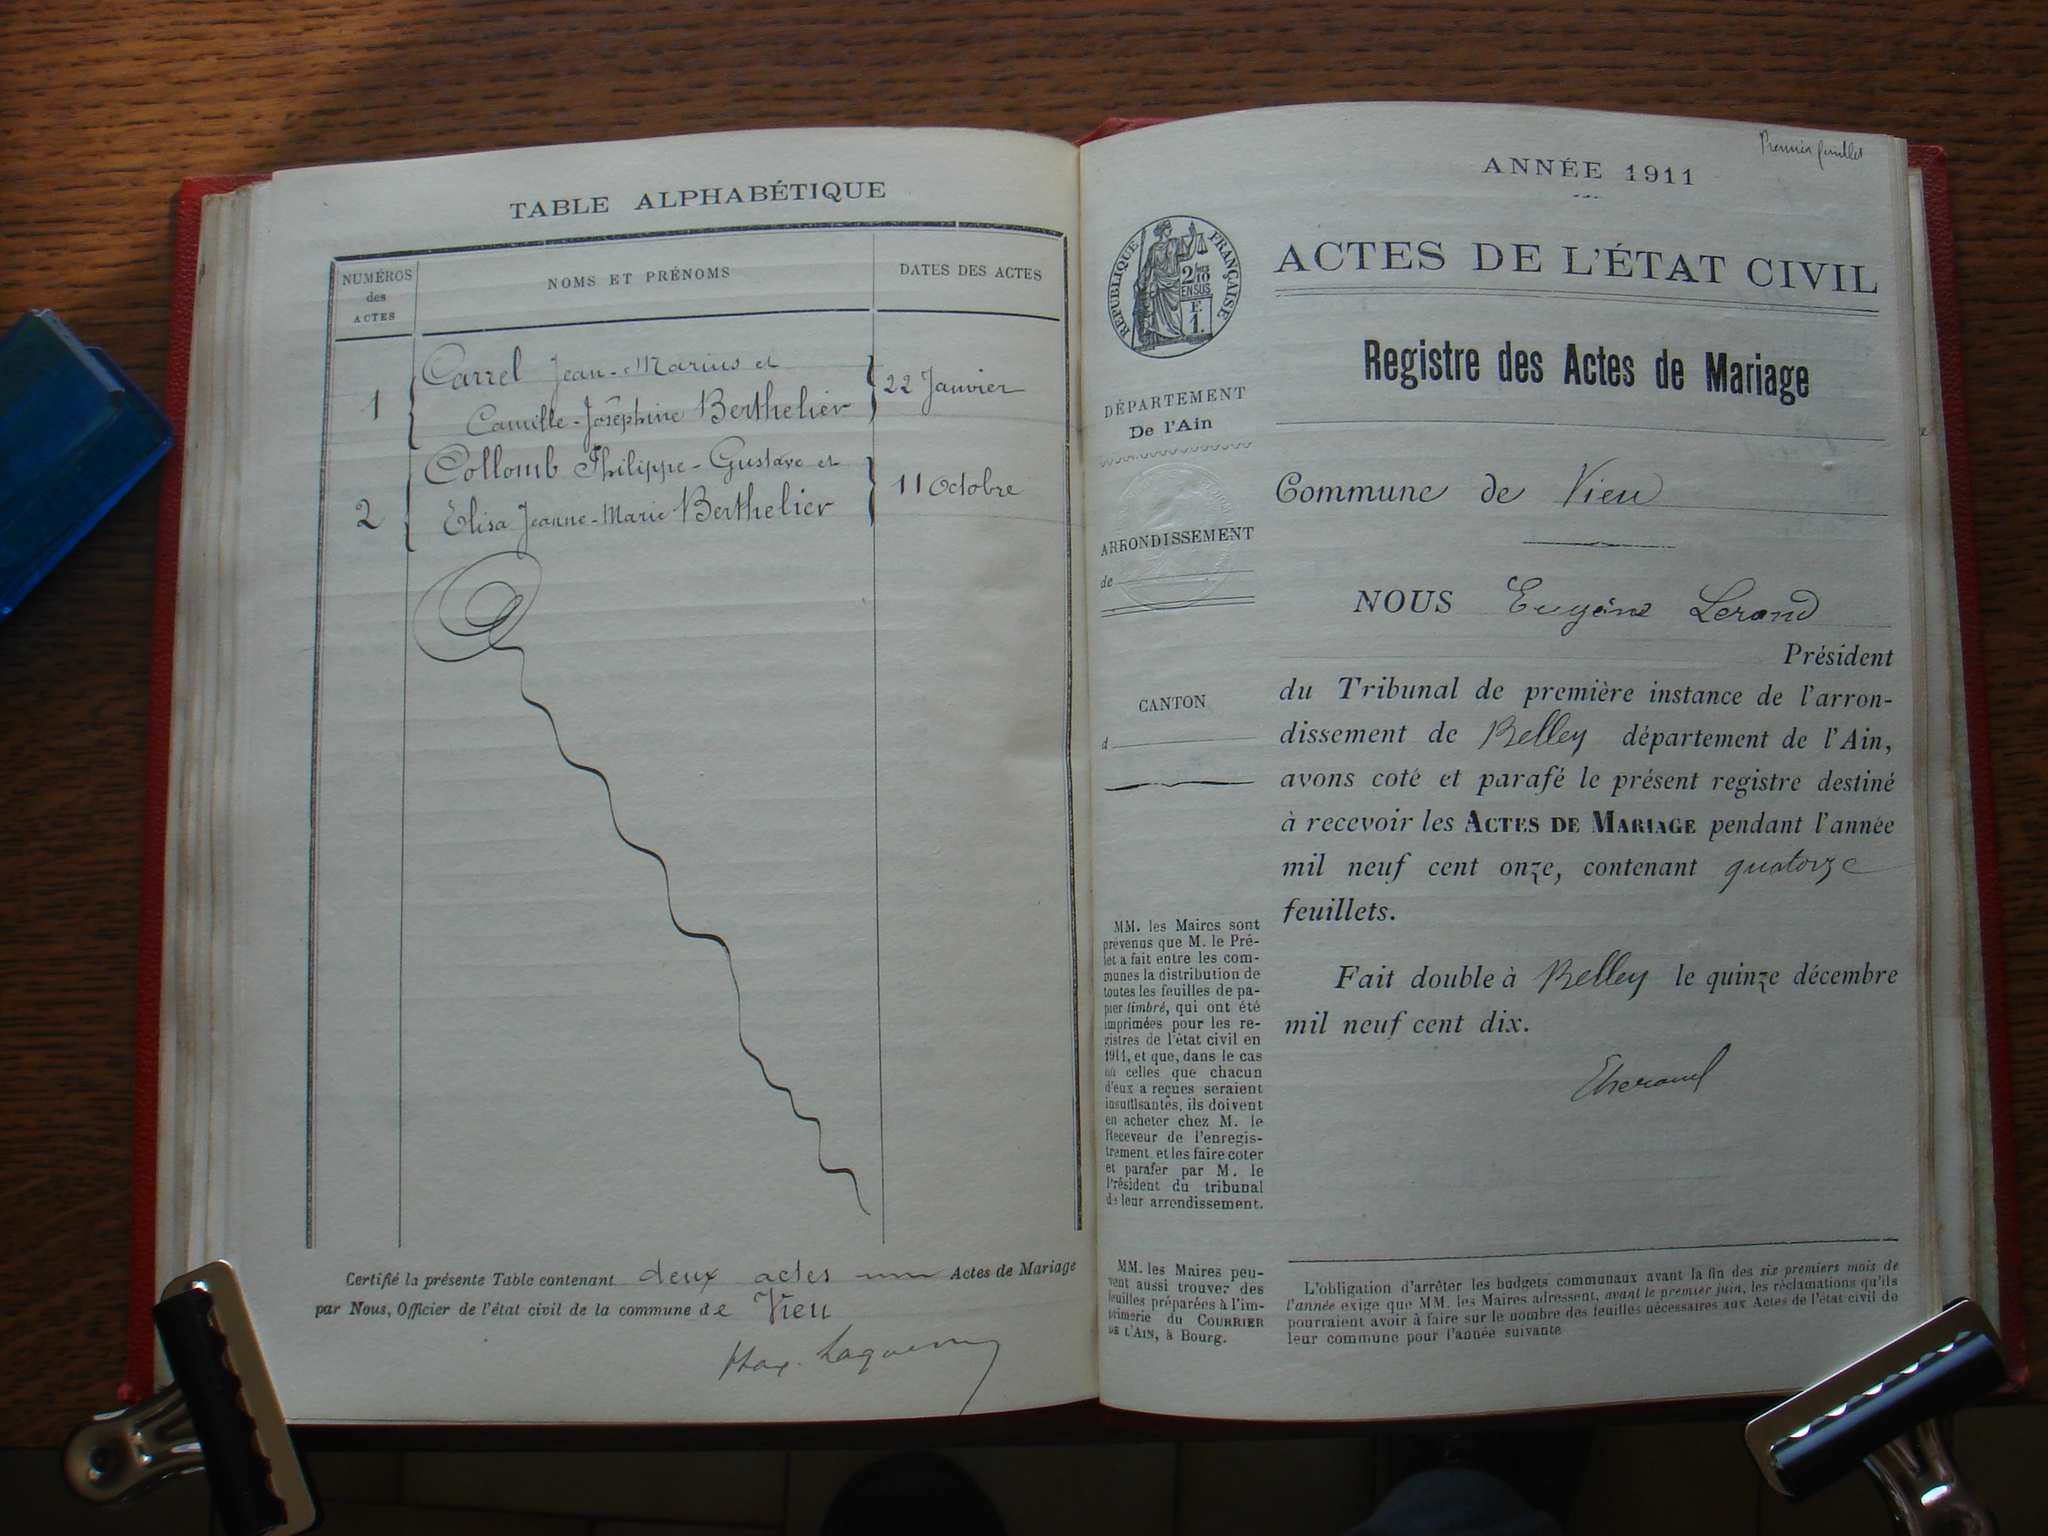 TABLE ALPHABÉTIQUE
NUMÉROS
des
ACTES
NOMS ET PRÉNOMS
DATES DES ACTES
1
Carrel Jean-Marius et
Camille-Joséphine Berthelier
22 Janvier
2
Collomb Philippe-Gustave et
Elisa Jeanne-Marie Berthelier
11 Octobre
Certifié la présente Table contenant deux actes Actes de Mariage
par Nous, Officier de l'état civil de la commune de Vieu
Premier feuillet
ANNÉE 1911
RÉPUBLIQUE FRANÇAISE
2/10
EN SUS
F.
1.
ACTES DE L'ÉTAT CIVIL
Registre des Actes de Mariage
DÉPARTEMENT
De l'Ain
ARRONDISSEMENT
de
CANTON
d
MM. les Maires sont
prévenus que M. le Pré-
fet a fait entre les com-
munes la distribution de
toutes les feuilles de pa-
pier timbré, qui ont été
imprimées pour les re-
gistres de l'état civil en
1911, et que, dans le cas
où celles que chacun
d'eux a reçues seraient
insuffisantes, ils doivent
en acheter chez M. le
Receveur de l'enregis-
trement et les faire coter
et parafer par M. le
Président du tribunal
de leur arrondissement.
MM. les Maires peu-
vent aussi trouver des
feuilles préparées à l'im-
primerie du COURRIER
DE L'AIN, à Bourg.
Commune de Vieu
NOUS Eugène Lerand
Président
du Tribunal de première instance de l'arron-
dissement de Belley département de l'Ain,
avons coté et parafé le présent registre destiné
à recevoir les ACTES DE MARIAGE pendant l'année
mil neuf cent onze, contenant quatorze
feuillets.
Fait double à Belley le quinze décembre
mil neuf cent dix.
L'obligation d'arrêter les budgets communaux avant la fin des six premiers mois de
l'année exige que MM. les Maires adressent, avant le premier juin, les réclamations qu'ils
pourraient avoir à faire sur le nombre des feuilles nécessaires aux Actes de l'état civil de
leur commune pour l'année suivante